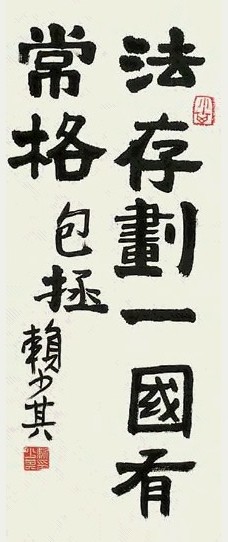 法存劃一國有
常格
包拯
賴少其